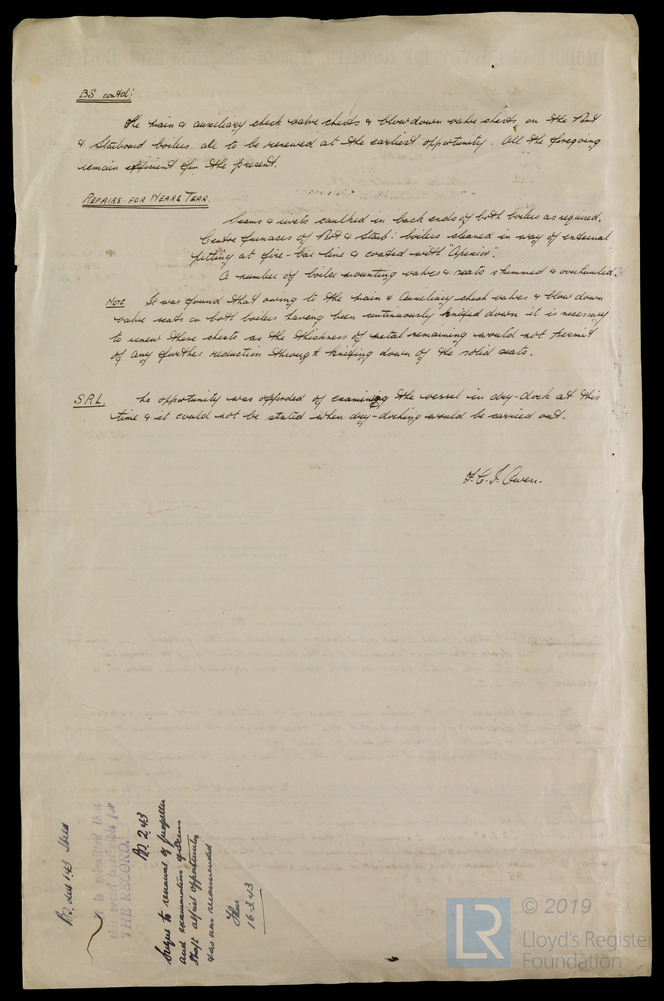 BS contd:
The main & auxiliary check valve chests & blow down valve chests on the Port
& Starboard boilers all to be renewed at the earliest opportunity. All the foregoing
remain efficient for the present.
REPAIRS FOR WEAR & TEAR.
Seams & rivets caulked in back ends of both boilers as required.
Centre furnaces of Port & Starb: boilers cleaned in way of external
pitting at fire-bar line & coated with "Apexior".
A number of boiler mounting valves & seats skimmed & overhauled.
Note It was found that owing to the main & Auxiliary check valves & blow down
valve seats on both boilers having been continuously knifed down it is necessary
to renew these chests as the thickness of metal remaining would not permit
of any further reduction through knifing down of the solid seats.
S.R.L. No opportunity was afforded of examining the vessel in dry-dock at this
time & it could not be stated when dry-docking would be carried out.
F. C. J. Owen.
It is submitted that
this vessel is eligible for
THE RECORD.
2,43
Subject to removal of propeller
and examination of screw
shaft at first opportunity
as now recommended
16.2.43
LR © 2019
Lloyd's Register
Foundation